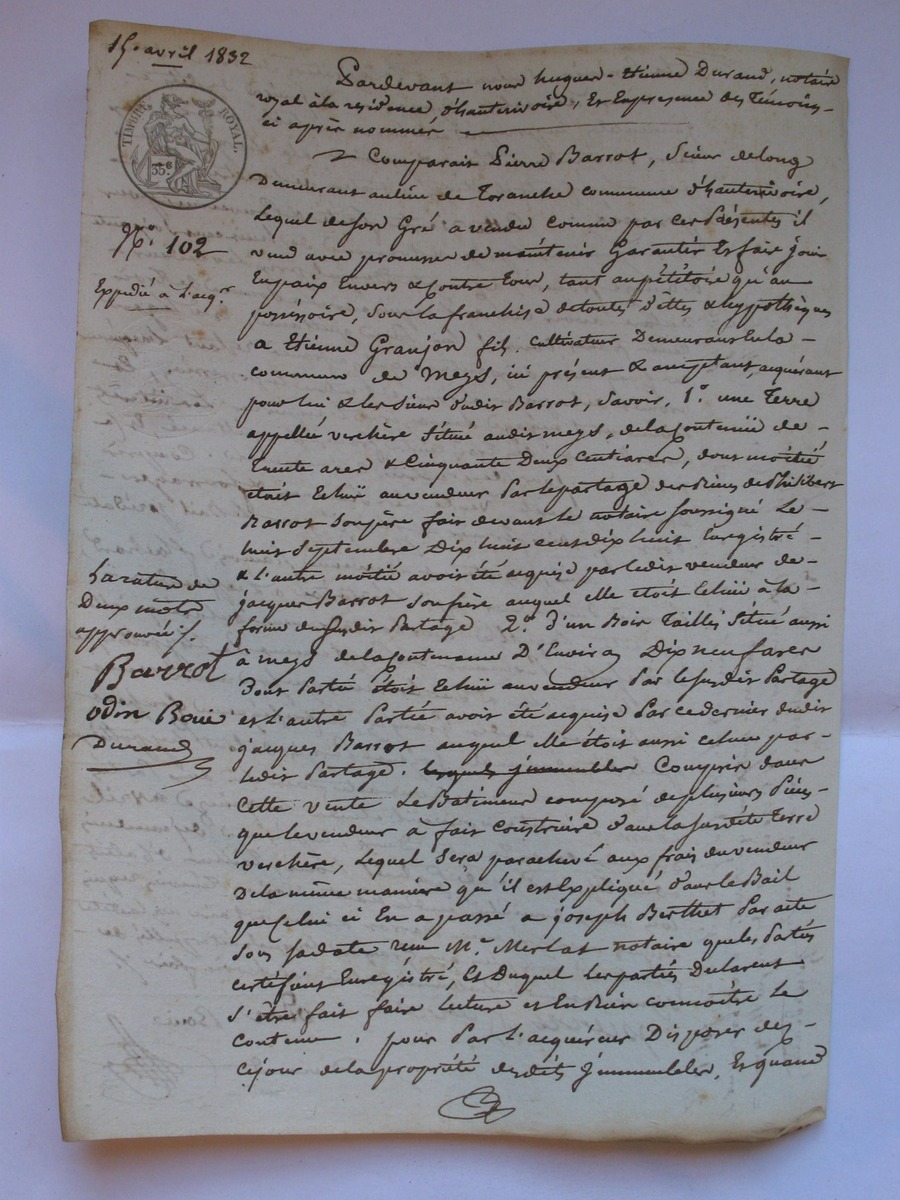 15. avril 1832
TIMBRE ROYAL.
35 c
No. 102
Expédié à l'acqr.
Pardevant nous hugues-Etienne Durand, notaire
royal à la résidence d'hauterivoire, Et En presence des Témoins
ci après nommés
Comparait Pierre Barrot, Sieur de long
Demeurant au lieu de Toranche commune d'hauterivoire,
Lequel de son Gré a vendu comme par ces Présentes il
vend avec promesse de maintenir Garantir Et faire jouir
En paix Envers & Contre tous, tant au pétitoire qu'au
possessoire, Sous la franchise de toutes dettes & hypothèques
a Etienne Granjon fils. cultivateur Demeurant En la
commune de Meys, ici présent & acceptant, acquérant
pour lui & les siens dudit Barrot, savoir, 1.° une Terre
appellée verchère Située audit meys, de la Contenüe de
Trente ares & Cinquante Deux Centiares, dont moitié
étoit Echüe au vendeur Par le partage des Biens de Philibert
Barrot son père fait devant le notaire soussigné Le
huit Septembre Dix huit cent dix huit Enregistré
& L'autre moitié avoit été acquise par ledit vendeur de
jacques Barrot son frère auquel elle étoit Echüe à la
forme du susdit Partage 2.° d'un Bois Taillis Situé aussi
à meys de la Contenance D'Environ Dix neuf ares
Dont Partie étoit Echüe au vendeur Par le susdit Partage
et L'autre Partie avoit été acquise Par ce dernier dudit
jacques Barrot auquel elle étoit aussi echüe par
ledit Partage. lesquels jmmeubles Compris dans
Cette vente Le Batiment composé de plusieurs Pièces
que le vendeur à fait construire dans la susdite Terre
verchère, Lequel Sera parachevé aux frais du vendeur
De la même manière qu'il est Expliqué dans le Bail
que Celui ci En a passé a joseph Berthet Par acte
Sous sa date reçu Me. Merlat notaire que les Parties
certifient Enregistré, Et Duquel Les parties Declarent
S'être fait faire lecture et En Bien connoitre Le
Contenu. pour Par L'acquéreur Disposer dès
ce jour de la propriété desdits Jmmeubles, Et quand
La rature de
Deux mots
approuvée /.
Barrot
odin Bouie
Durand